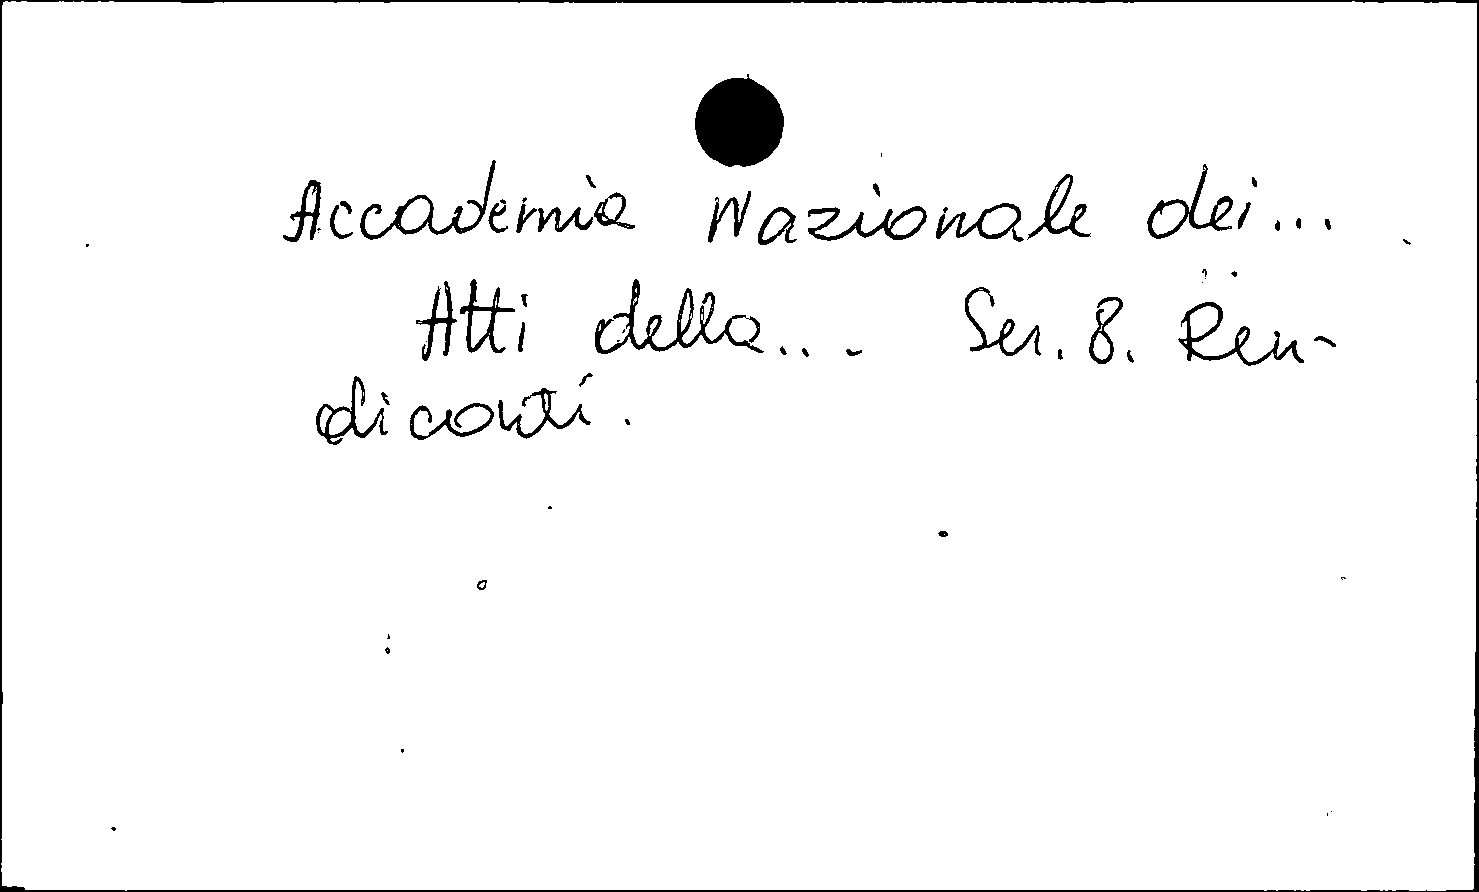 Accademia Nazionale dei...
Atti della... Ser. 8. Ren-
diconti.